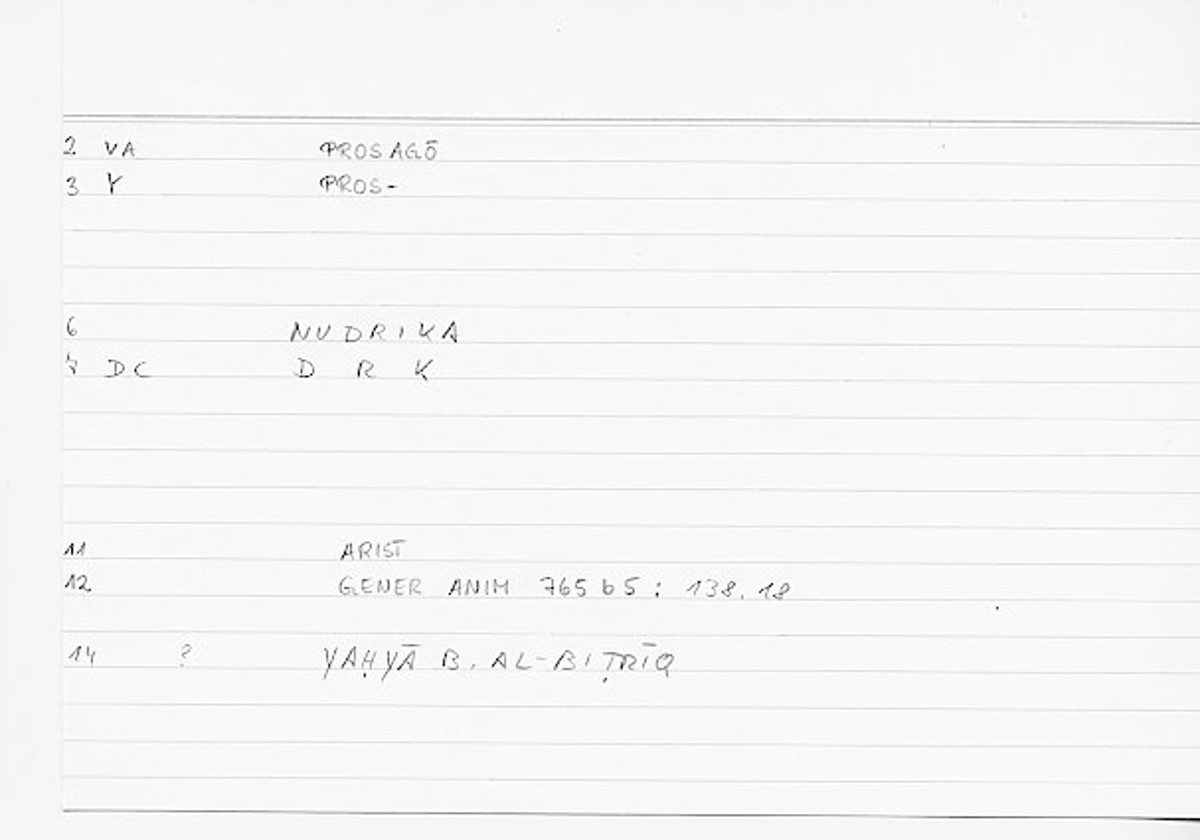 2 VA PROSAGŌ
3 Y PROS-
6 NUDRIKA
7 DC D R K
11 ARIST
12 GENER ANIM 765 b 5 : 138.18
14 ? YAḤYĀ B. AL-BIṬRĪQ